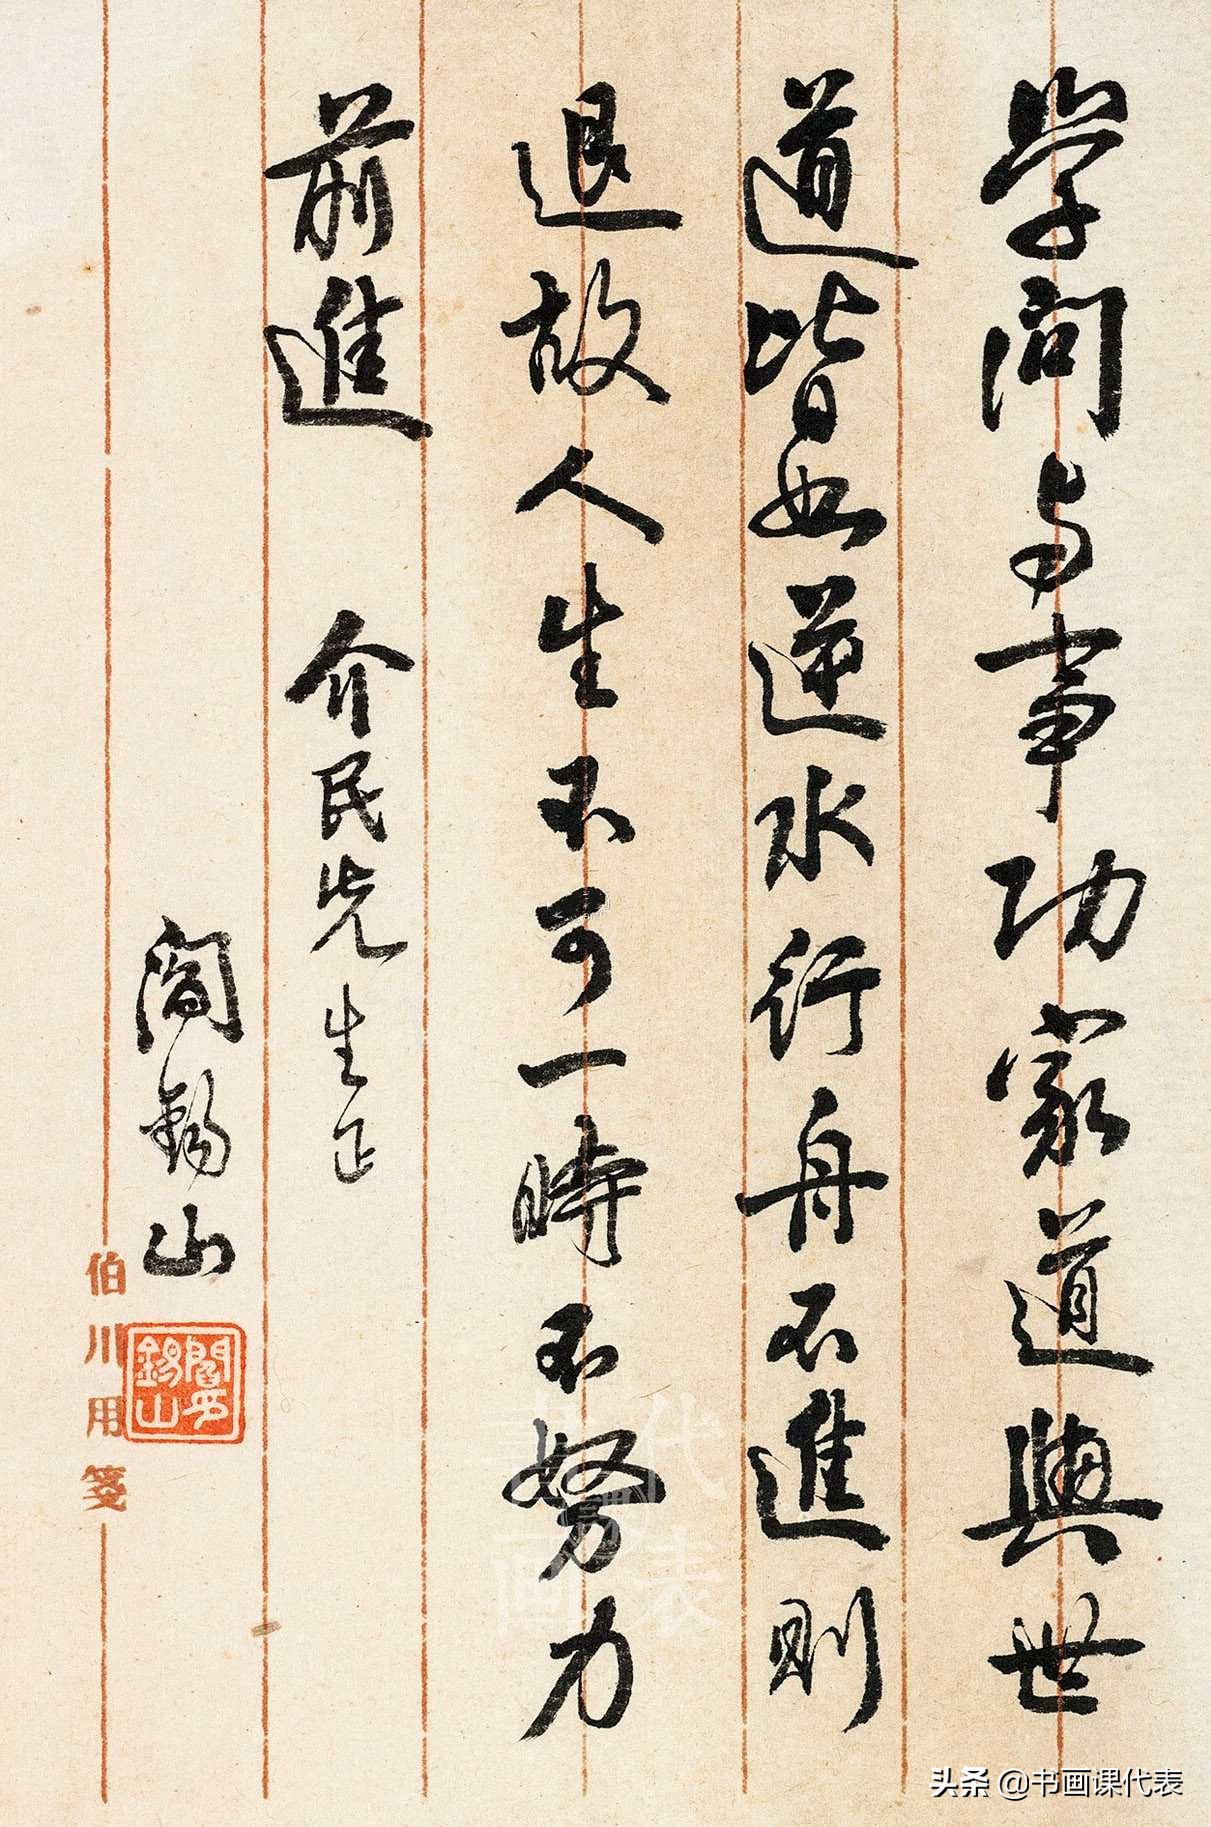 学问与事功家道與世
道皆如逆水行舟不進則
退故人生不可一時不努力
前進 介民先生正
閻錫山
閻錫山印
伯川用箋
书画课代表
头条 @书画课代表